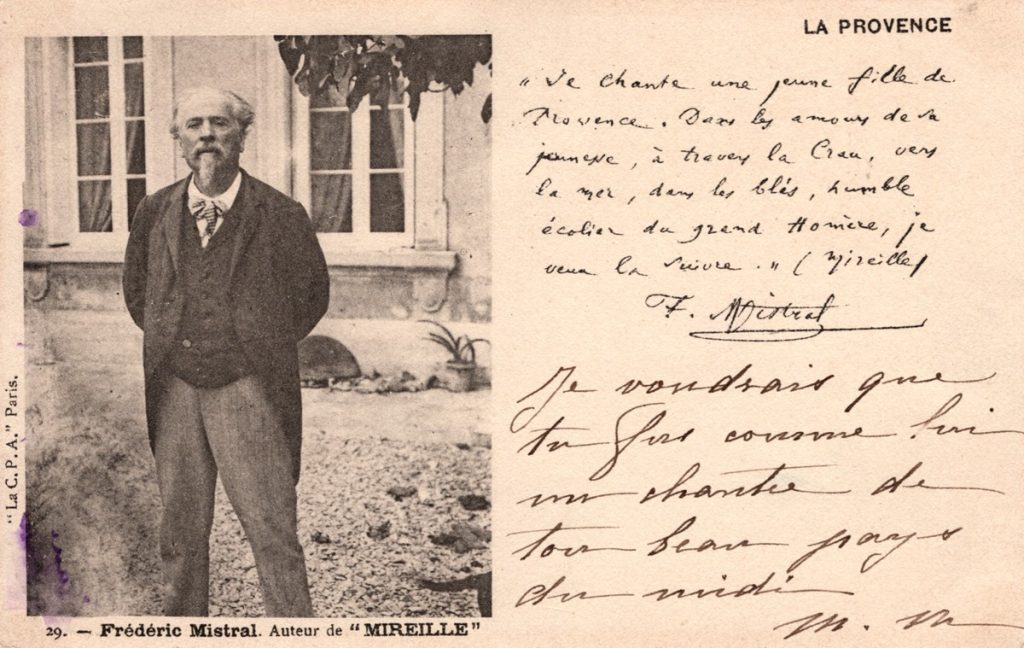 LA PROVENCE
" Je chante une jeune fille de
Provence. Dans les amours de sa
jeunesse, à travers la Crau, vers
la mer, dans les blés, humble
écolier du grand Homère, je
veux la suivre. " (Mireille)
F. Mistral
Je voudrais que
tu fus comme lui
un chantre de
ton beau pays
du midi
M. M
"La C. P. A." Paris.
29. — Frédéric Mistral. Auteur de "MIREILLE"